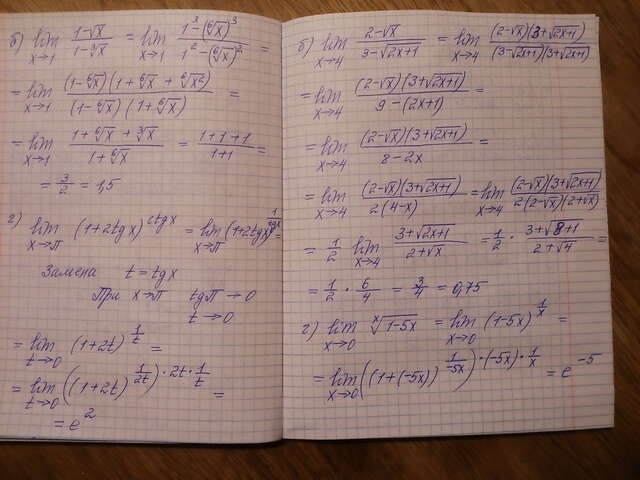 б) lim x→1 (1-√x)/(1-∛x) = lim x→1 (1³-(⁶√x)³)/(1²-(⁶√x)²) =
= lim x→1 ((1-⁶√x)(1+⁶√x+⁶√x²))/((1-⁶√x)(1+⁶√x)) =
= lim x→1 (1+⁶√x+∛x)/(1+⁶√x) = (1+1+1)/(1+1) =
= 3/2 = 1,5
г) lim x→π (1+2tgx)^(ctgx) = lim x→π (1+2tgx)^(1/tgx) =
Замена t = tgx
При x→π tgπ→0
t→0
= lim t→0 (1+2t)^(1/t) =
= lim t→0 ((1+2t)^(1/2t))^(·2t·1/t) =
= e²
б) lim x→4 (2-√x)/(3-√(2x+1)) = lim x→4 ((2-√x)(3+√(2x+1)))/((3-√(2x+1))(3+√(2x+1)))
= lim x→4 ((2-√x)(3+√(2x+1)))/(9-(2x+1)) =
= lim x→4 ((2-√x)(3+√(2x+1)))/(8-2x) =
= lim x→4 ((2-√x)(3+√(2x+1)))/(2(4-x)) = lim x→4 ((2-√x)(3+√(2x+1)))/(2(2-√x)(2+√x))
= 1/2 lim x→4 (3+√(2x+1))/(2+√x) = 1/2 · (3+√(8+1))/(2+√4) =
= 1/2 · 6/4 = 3/4 = 0,75
г) lim x→0 ˣ√(1-5x) = lim x→0 (1-5x)^(1/x) =
= lim x→0 ((1+(-5x))^(1/-5x))^(·(-5x)·1/x) = e^(-5)